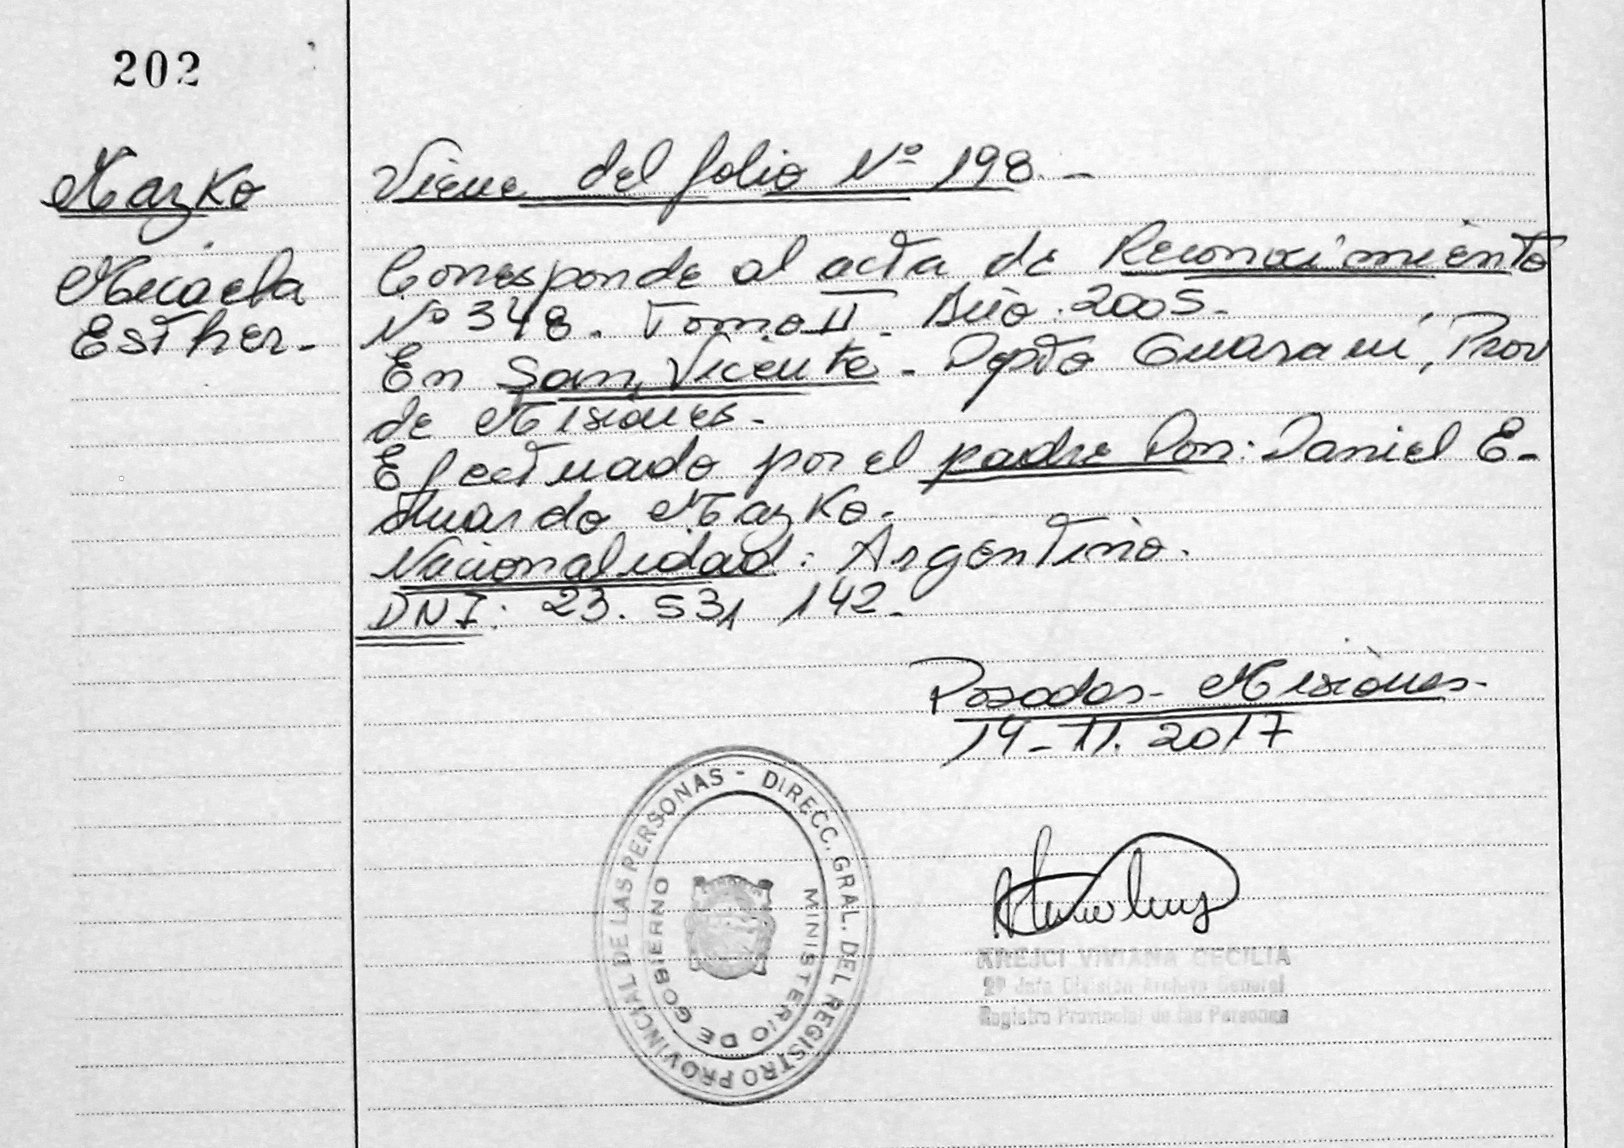 202
Mazko
Micaela
Esther.-
Viene del folio Nº 198.-
Corresponde al acta de Reconocimiento
Nº 348. Tomo II. Año: 2005.-
En San Vicente. Dpto Guaraní, Prov
de Misiones.-
Efectuado por el padre Don: Daniel E-
duardo Mazko.
Nacionalidad: Argentino.
DNI: 23.531.142.-
Posadas- Misiones-
14-11-2017
DIRECC. GRAL. DEL REGISTRO PROVINCIAL DE LAS PERSONAS -
MINISTERIO DE GOBIERNO
KREJCI VIVIANA CECILIA
2º Jefa División Archivo General
Registro Provincial de las Personas